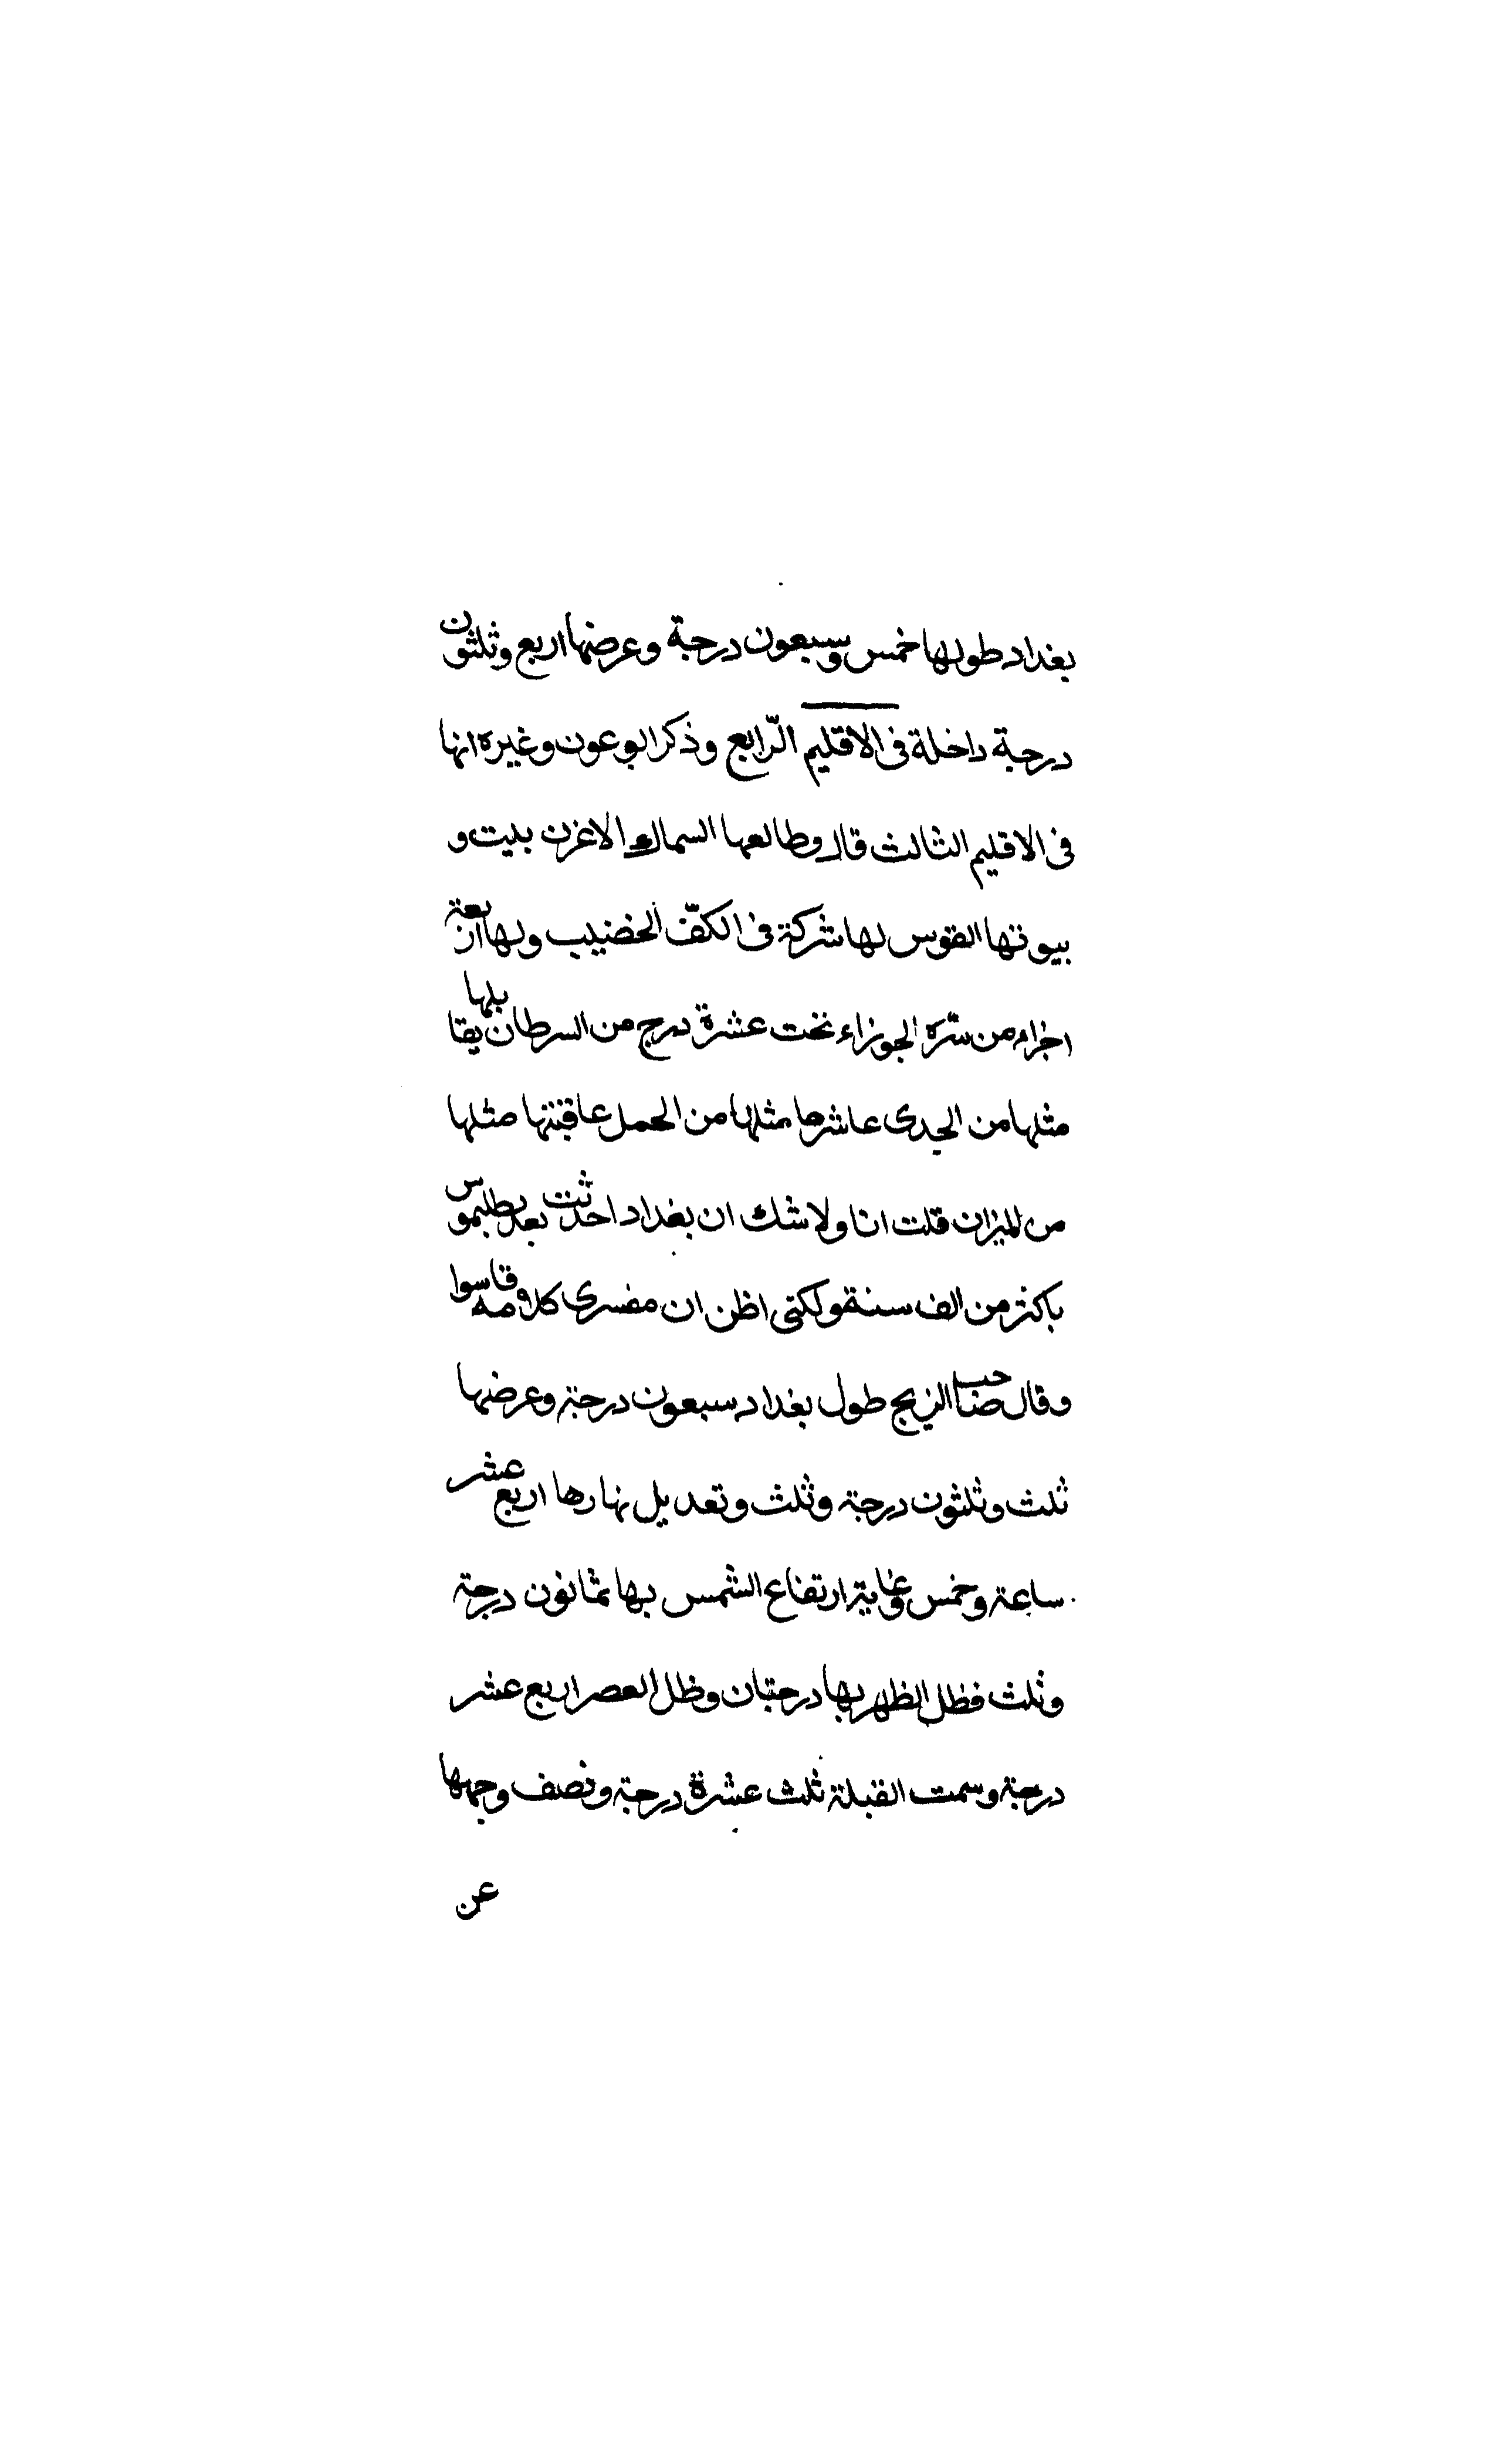 بغداد طولها خمس وسبعون درجة وعرضها اربع وثلثون
درجة داخلة فى الاقليم الرّابع وذكر ابو عون وغيره انها
فى الاقليم الثالث قال وطالعها السماك الاعزن بليت و
بيوتها القوس لها شركة فى الكفّ الخضيب ولها اربعة
اجزاء من سّرة الجوزاء تحت عشرة درج من السرطان يقابلها
مثلها من الجدى عاشرها مثلها من الحمل عاقبتها مثلها
من الميزان قلت انا ولا شك ان بغداد احدثت بعد بطليموس
باكثر من الف سنة ولكنى اظن ان مفسرى كلامه وقاسوا
وقال صاحب الزيج طول بغداد سبعون درجة وعرضها
ثلث وثلثون درجة وثلث وتعديل نهارها اربع عشر
ساعة وخمس وغاية ارتفاع الشمس بها ثمانون درجة
وثلث فظل الظهر بها درجتان وظل العصر اربع عشر
درجة وسمت القبلة ثلث عشرة درجة ونصف وجهها
عن